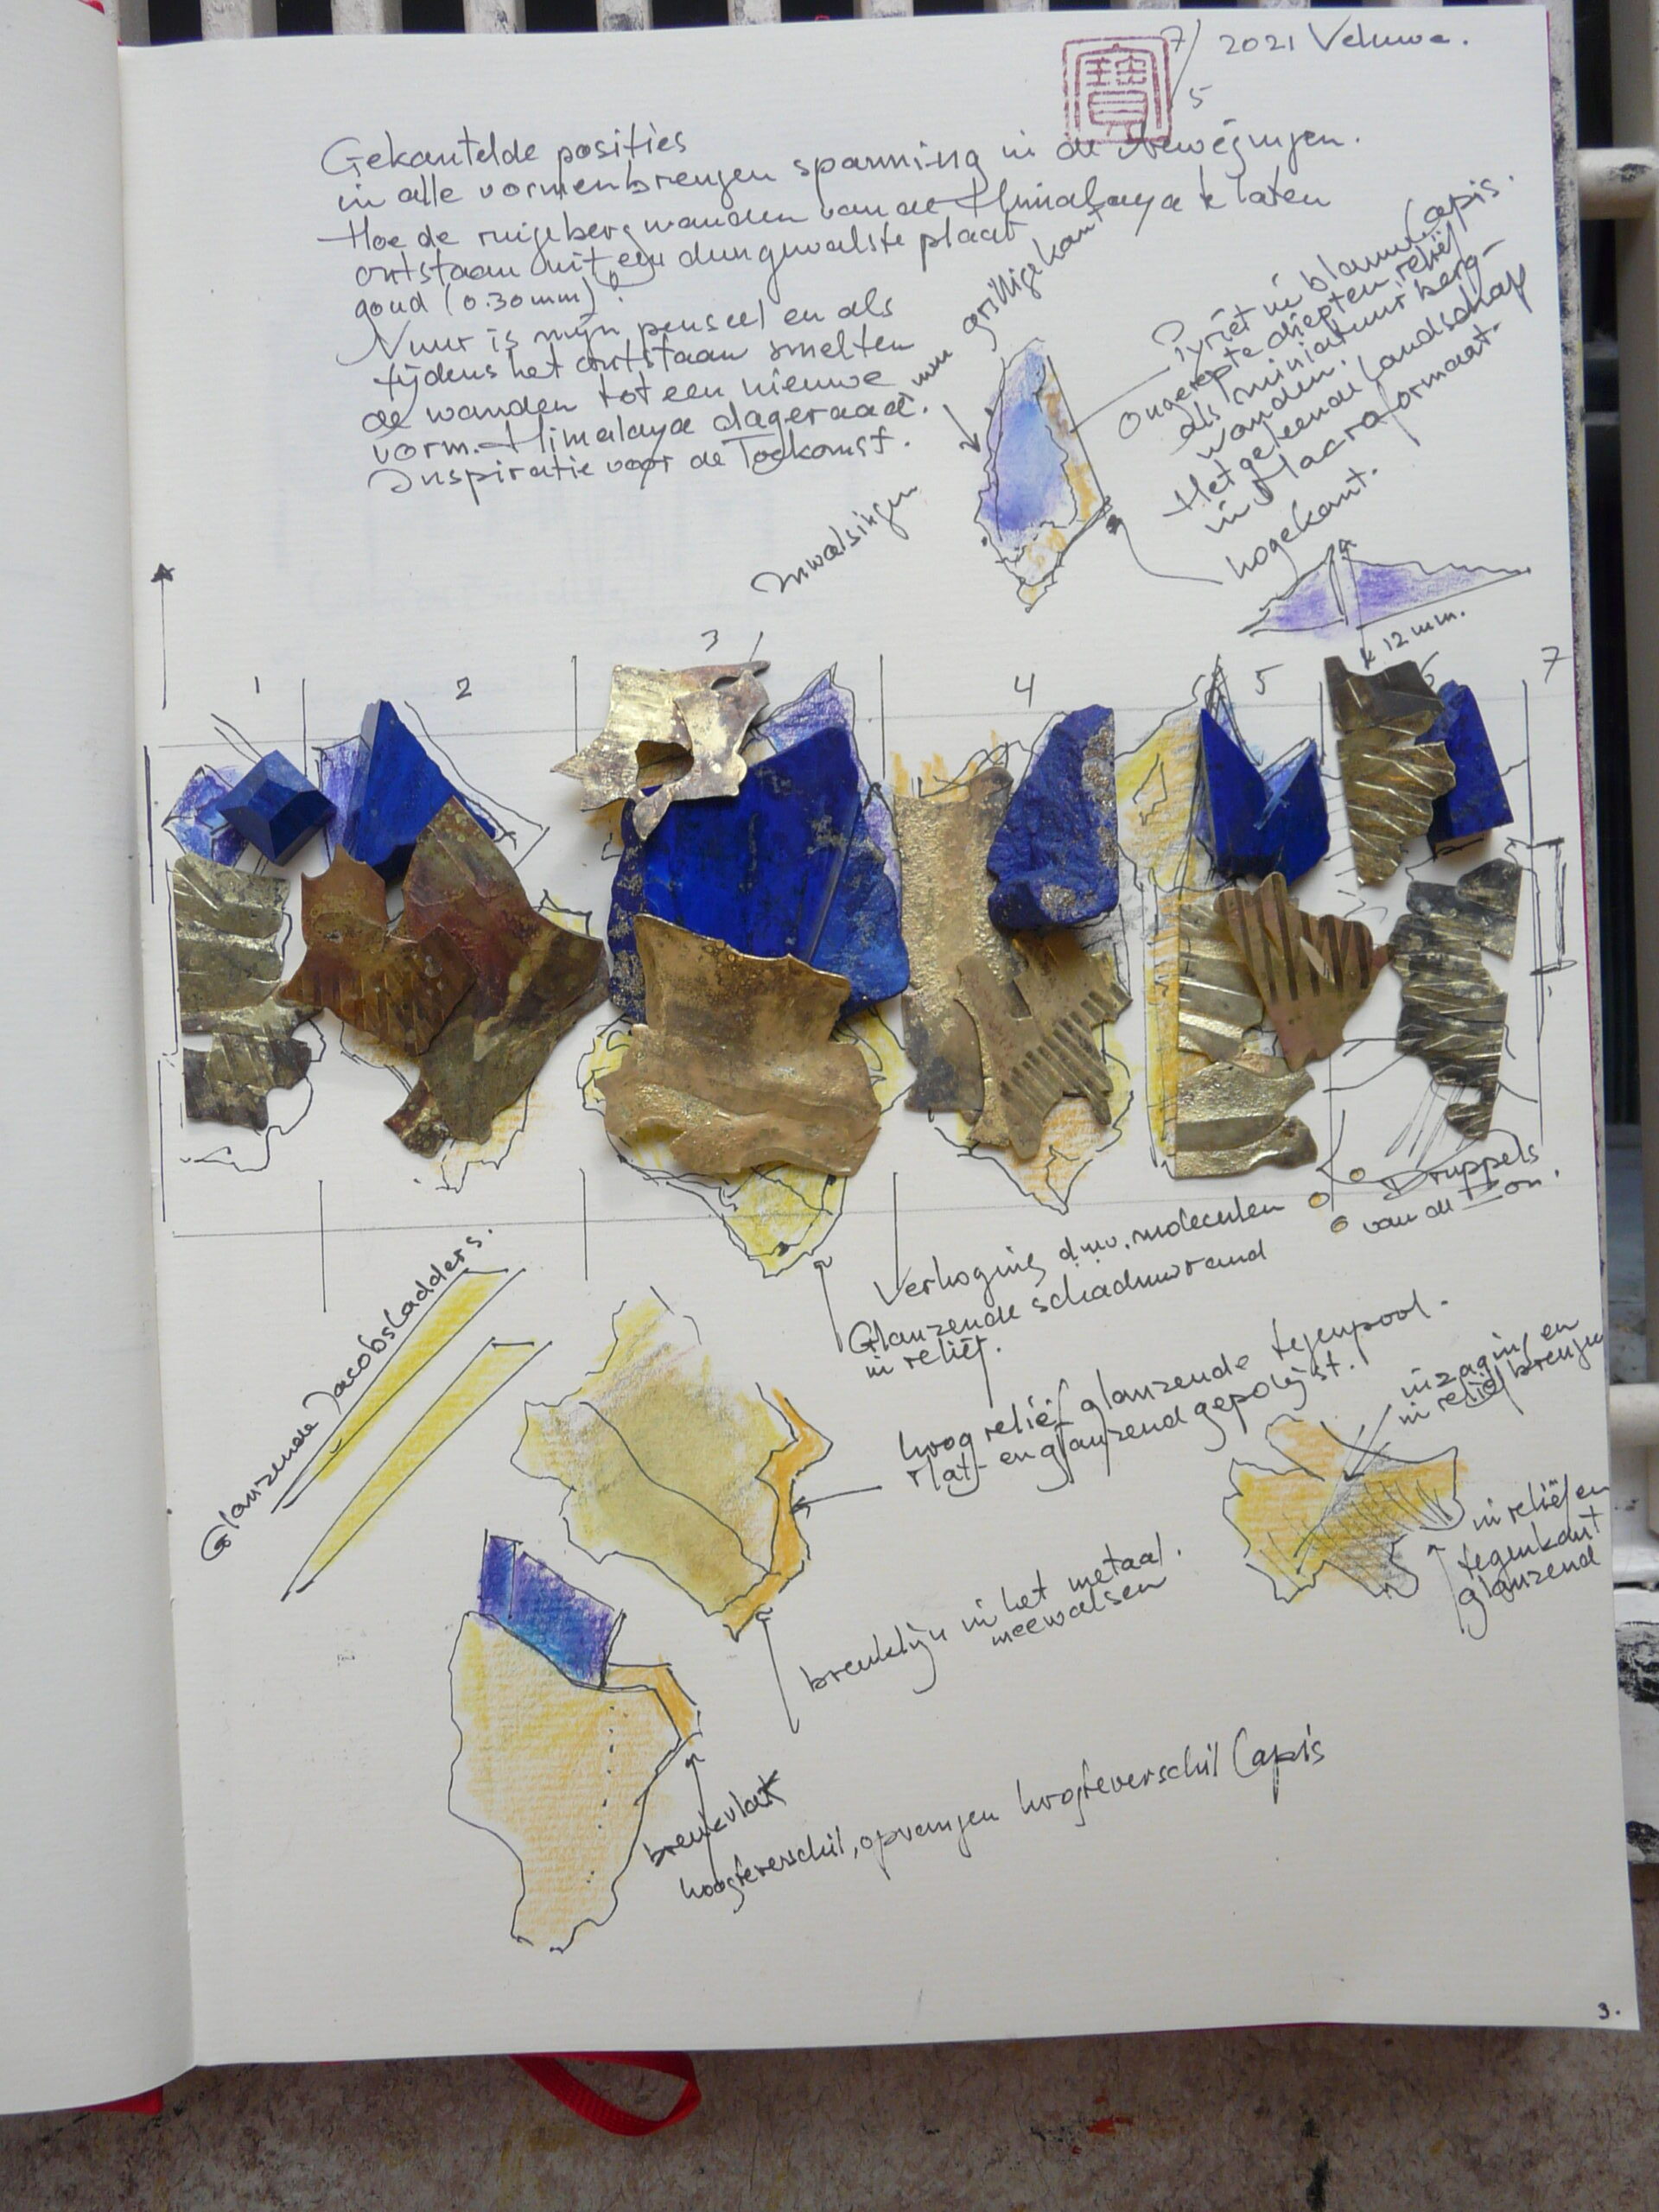 7/5 2021 Veluwe.
寶
Gekantelde posities
in alle vormen brengen spanning in de bewegingen.
Hoe de ruige bergwanden van de Himalaya te laten
ontstaan uit een dungewalste plaat
goud (0.30mm)?
Vuur is mijn penseel en als
tijdens het ontstaan smelten
de wanden tot een nieuwe
vorm. Himalaya dageraad.
Inspiratie voor de Toekomst.
grillige kant
Pyriet in blauwe Lapis.
Ongerepte diepten, reliëf
als miniatuur berg-
wanden.
Het geleende landschap
in Macroformaat.
hoge kant.
Inwalsingen
12 mm.
1
2
3
4
5
6
7
Druppels
van de Zon.
Verhoging d.m.v. moleculen
Glanzende schaduwrand
in reliëf.
Glanzende Jacobsladders.
hoog reliëf glanzende tegenpool.
Mat en glanzend gepolijst.
inzaging en
in reliëf brengen
in reliëf en
tegenkant
glanzend
breuklijn in het metaal.
meewalsen
breukvlak
hoogteverschil, opvangen hoogteverschil Lapis
3.